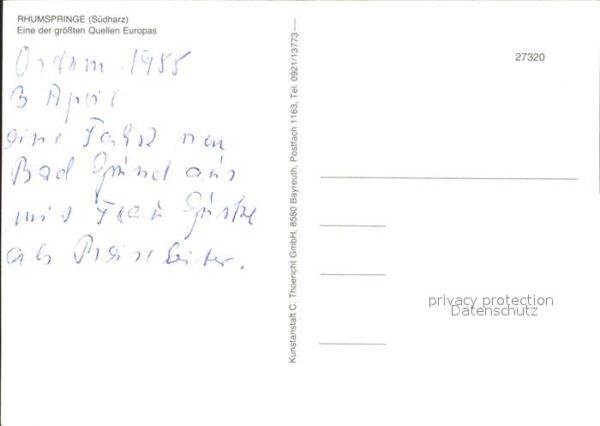 RHUMSPRINGE (Südharz)
Eine der größten Quellen Europas
27320
Ostern 1988
3 April
eine Fahrt von
Bad Grund aus
mit Frau
als Reiseleiter.
Kunstanstalt C. Thoericht GmbH, 8580 Bayreuth, Postfach 1163, Tel. 0921/13773
privacy protection
Datenschutz